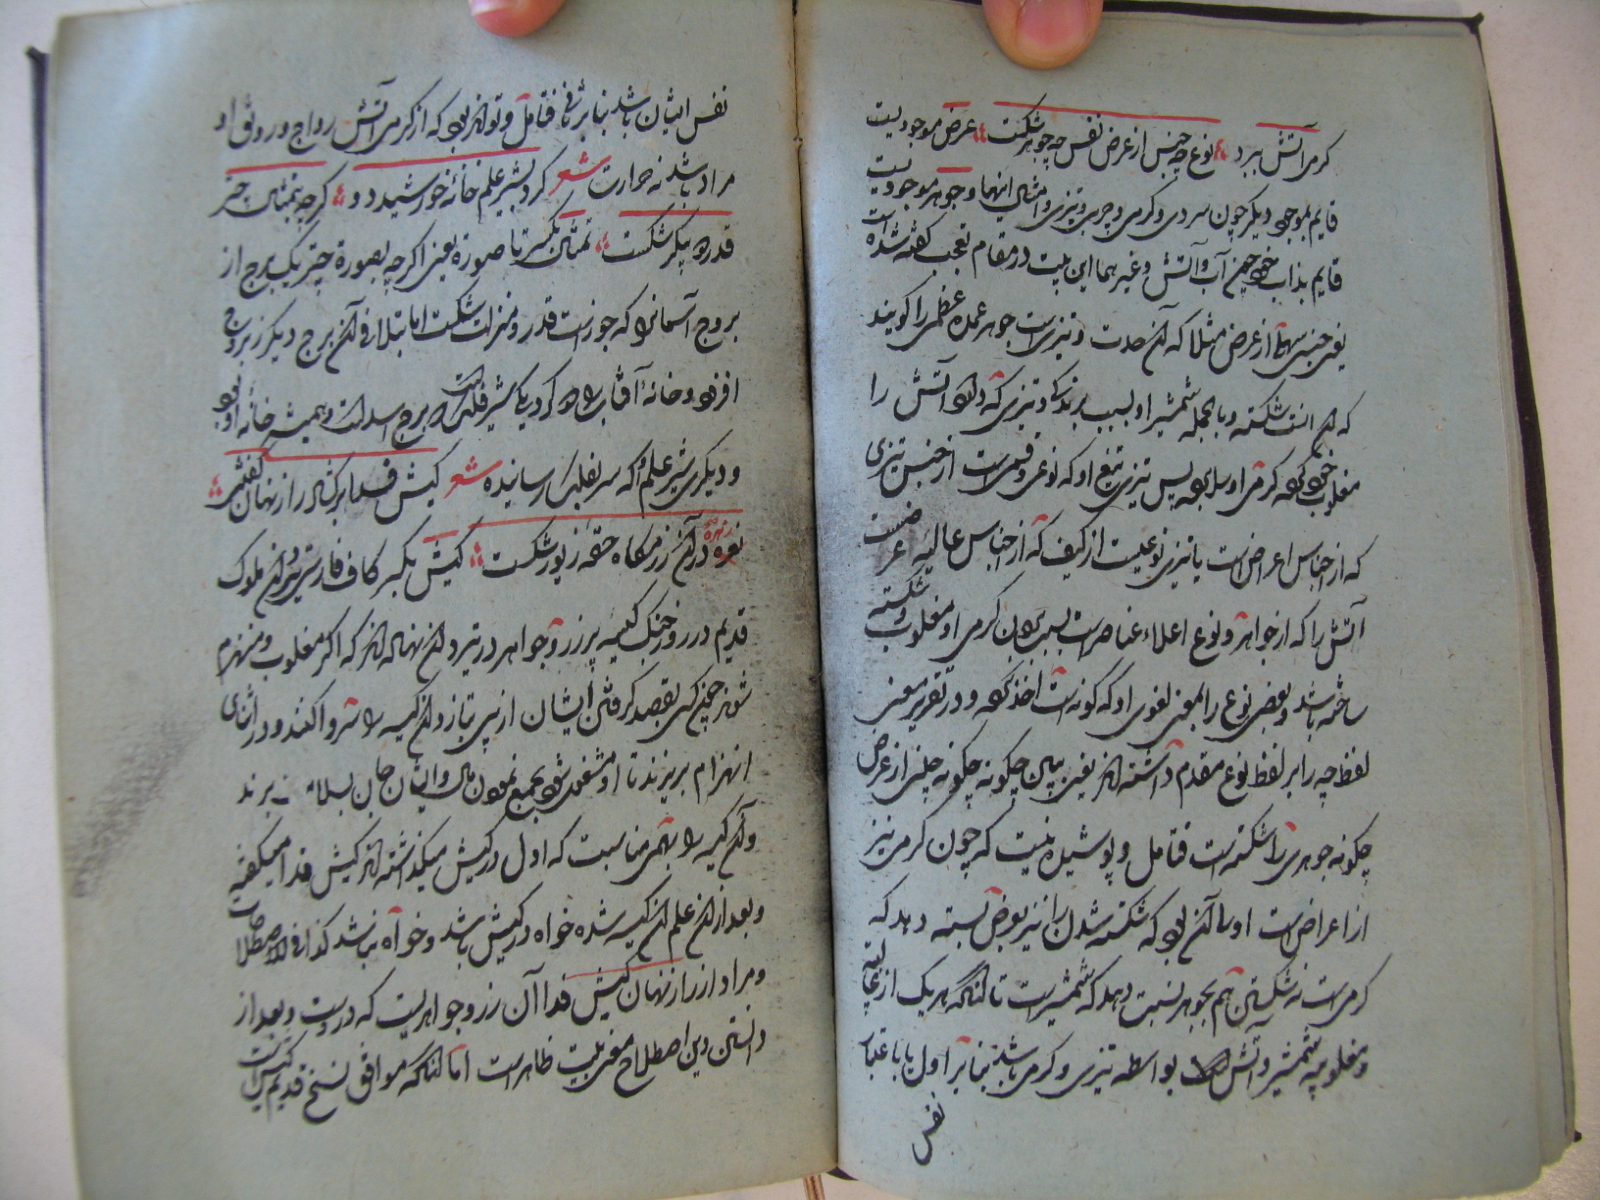 گرمی آتش ببرد نوع چه جنس از عرض نفس چه جوهر شکست عرض موجودیست
قایم بموجود دیگر چون سردی و گرمی و چربی و تیزی و امثال اینها و جوهر موجودیست
قایم بذات خود چون آب و آتش و غیر هما این بیت در مقام تعجب گفته شده است
یعنی جنسی از عرض مثلا که آن حدت و تیزی است جوهر عمده عظمی را گویند
که آن است شکسته و بالجمله شمشیر او بسبب برندگی و تیزی که دارد آتش را
مغلوب خود کرد گرمی او سلب پس تیزی تیغ او که نوعی و قسمی است از جنس تیزی
که از اجناس اعراض است یا تیزی نوعیست از کیف که از اجناس عالیه عرضست
آتش را که از جواهر و نوع اعلاء عناصر است بسبب بردن گرمی او مغلوب و شکسته
ساخته باشد و بعضی نوع را بمعنی لغوی او که گونه است اخذ کرده و در تقریر معنی
لفظ چه را بر لفظ نوع مقدم داشته اند یعنی ببین چگونه چگونه جنسی از عرض
چگونه جوهری را شکسته است فتامل و پوشیده نیست که چون گرمی نیز
از اعراض است اولی آن بود که شکسته شدن را نیز بعرض نسبت دهد که
گرمی است نه شکستن هم بجوهر نسبت دهد که شمشیر است تا آنکه هر یک از غالبیه
و مغلوبیه شمشیر و آتش بواسطه تیزی و گرمی باشد بنا بر اول یا باعتبار
نفس
نفس ایشان باشد بنا بر ثانی فتامل و تواند بود که از گرمی آتش رواج و رونق او
مراد باشد نه حرارت شعر کرد بشیر علم خانهٔ خورشید دو گرچه بتمثال چتر
قدر دو پیکر شکست تمثال بکسر تا صورة یعنی اگرچه بصورة چتر یک برج از
بروج آسمانرا که جوزاست قدر و منزلت شکست اما بتلافی آن برج دیگر ز بروج
افزود و خانهٔ آفتاب را دو کرد یکی شیر فلک است که برج اسد است و همیشه خانهٔ او بود
و دیگری شیر علم او که سر بفلک رسانیده شعر کیش فدا برگشاد راز نهان کفتش
نعره در آن رزمگاه حقه زیور شکست کیش بکسر کاف فارسی تیردان ملوک
قدیم در روز جنگ کیسه پر زر و جواهر در تیردان نهاده اند که اگر مغلوب و منهزم
شوند چون کسی بقصد گرفتن ایشان از پی بتازد آن کیسه را سر وا کنند و در اثنای
انهزام بریزند تا او مشغول شود بجمع نمودن مال و ایشان جان بسلامت برند
و آن کیسه را بهمین مناسبت که اول در کیش میگذاشته اند کیش فدا میگفته
و بعد از آن علم آن کیسه شده خواه در کیش باشد و خواه نباشد کذا فی الاصطلاحات
و مراد از راز نهان کیش فدا آن زر و جواهریست که دروست و بعد از
دانستن این اصطلاح معنی بیت ظاهر است اما آنکه موافق نسخ قدیم است